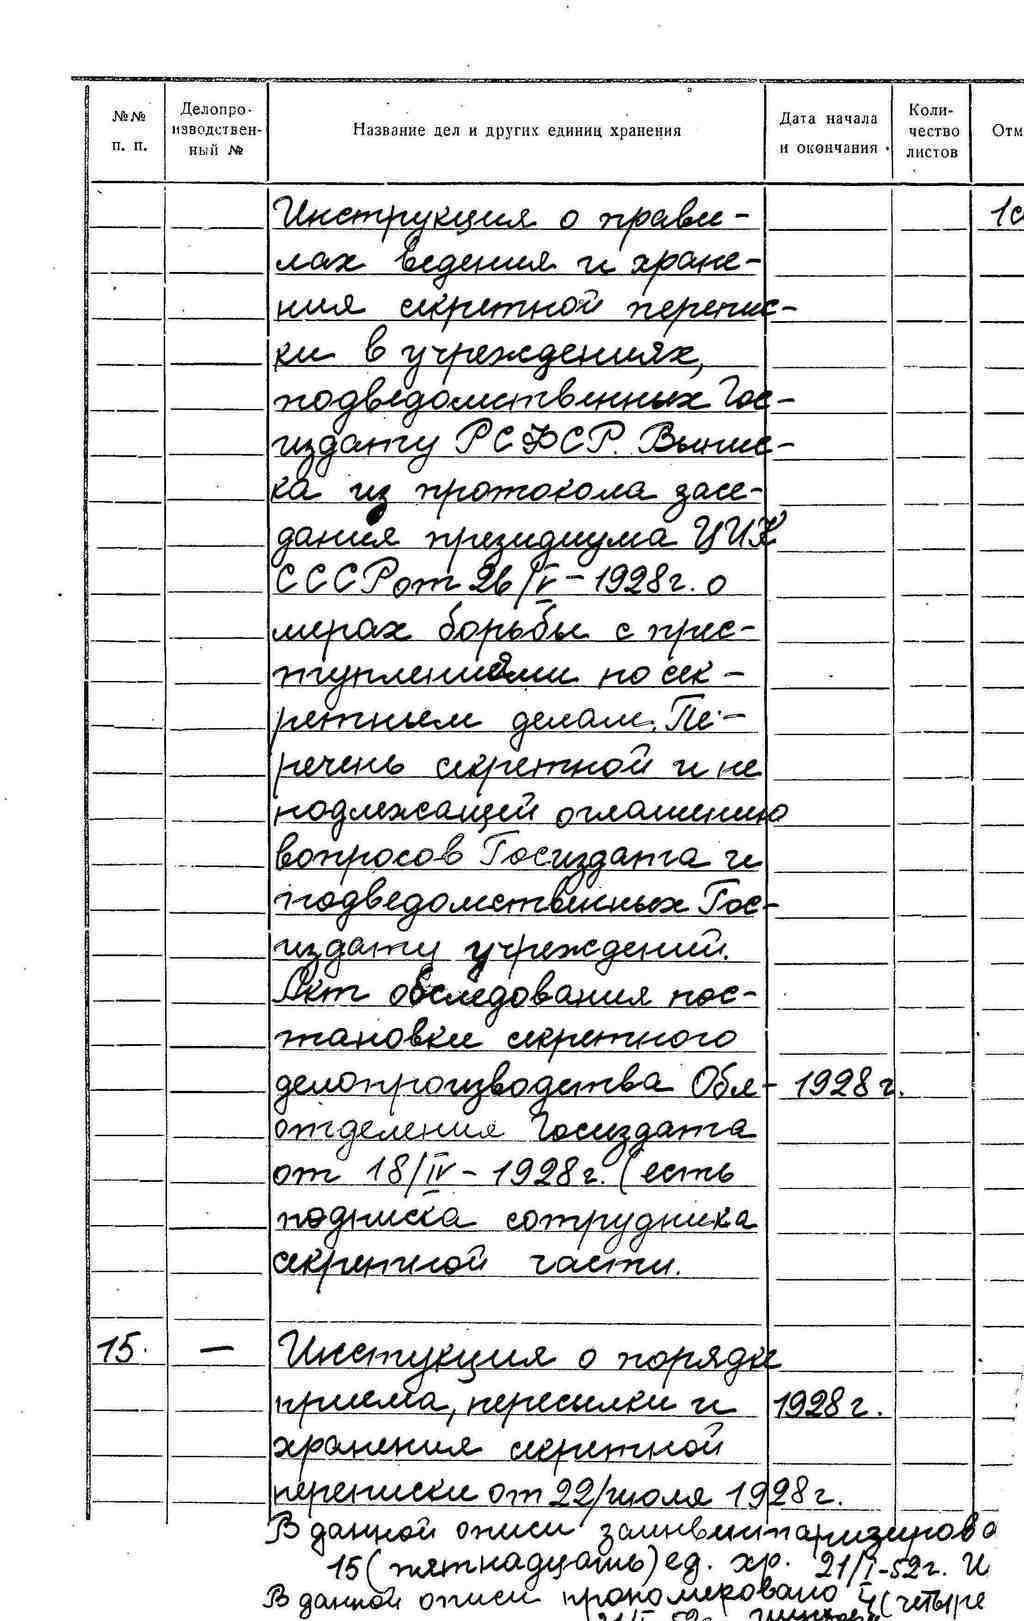 №№ п. п.
Делопро-
изводствен-
ный №
Название дел и других единиц хранения
Дата начала
и окончания
Коли-
чество
листов
Отм
Инструкция о прави-
лах ведения и хране-
ния секретной перепис-
ки в учреждениях,
подведомственных Гос-
издату РСФСР. Выпис-
ка из протокола засе-
дания президиума ЦИК
СССР от 26/IV-1928г. о
мерах борьбы с прес-
туплениями по сек-
ретным делам. Пе-
речень секретной и не
подлежащей оглашению
вопросов Госиздата и
подведомственных Гос-
издату учреждений.
Акт обследования пос-
тановки секретного
делопроизводства Обл- 1928 г.
отделения Госиздата
от 18/IV-1928г. (есть
подписка сотрудника
секретной части.
15. — Инстукция о порядке
приема, пересылки и 1928 г.
хранения секретной
переписки от 22/июля 1928г.
В данной описи заинвентаризирова
15 (пятнадцать) ед. хр. 21/I-52г.
В данной описи прономеровано 4 (четыре